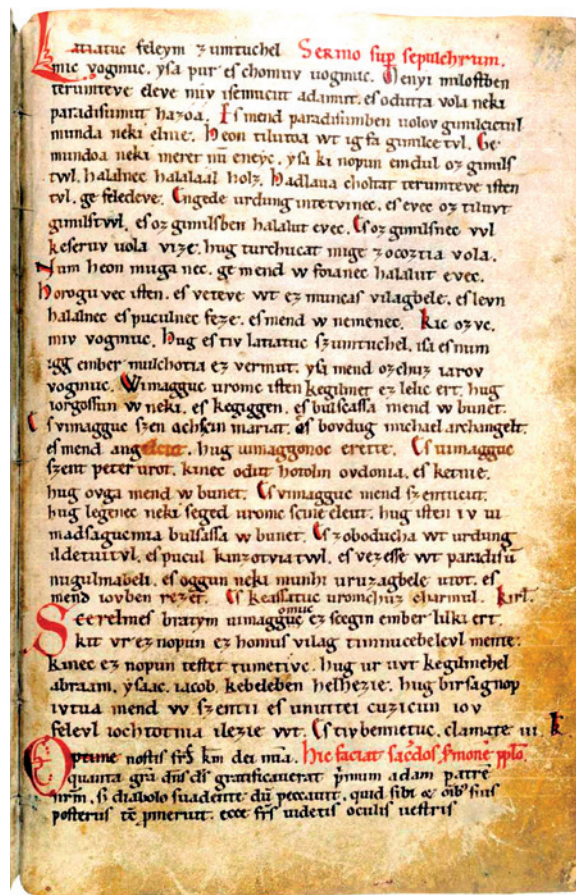 Latiatuc feleym zumtuchel Sermo sup sepulchrum.
mic vogmuc. ysa pur es chomuv uogmuc. Menyi milostben
terumteve eleve miv isemucut adamut. es odutta vola neki
paradisumut hazoa. Es mend paradisumben uolov gimilcictul
munda neki elnie. Heon tilutoa wt ig fa gimilcetvl. Ge
mundoa neki meret nū eneyc. ysa ki nopun emdul oz gimils
twl. halalnec halalaal holz. Hadlaua choltat terumteve isten
tvl. ge feledeve. Engede urdung intetvinec. es evec oz tiluvt
gimilstwl. es oz gimilsben halalut evec. Es oz gimilsnec vvl
keseruv uola vize. hug turchucat mige zocoztia vola.
Num heon muga nec. ge mend w foianec halalut evec.
Horogu vec isten. es veteve wt ez muncas vilagbele. es levn
halalnec es puculnec feze. es mend w nemenec. Kic ozvc.
miv vogmuc. Hug es tiv latiatuc szumtuchel. isa es num
igg ember mulchotia ez vermut. ysa mend ozchuz iarov
vogmuc. Wimagguc uromc isten kegilmet ez lelic ert. hug
iorgossun w neki. es kegiggen. es bulsassa mend w bunet.
Es vimagguc szen achscin mariat. es bovdug michael archangelt.
es mend angelcut. hug uimaggonoc erette. Es uimagguc
szent peter urot. kinec odut hotolm ovdonia. es ketnie.
hug ovga mend w bunet. Es vimagguc mend szentucut.
hug legenec neki seged uromc scine eleut. hug isten iv ui
madsagucmia bulsassa w bunet. Es zoboducha wt urdung
ildetuitvl. es pucul kinzotviatwl. es vezesse wt paradisū
nugulmabeli. es oggun neki munhi uruzagbele utot. es
mend iovben rezet. Es keassatuc uromchuz charmul. kirł.
Scerelmes bratym uimagguc omuc ez scegin ember lilki ert.
kit vr ez nopun ez homus vilag timnucebelevl mente.
kinec ez nopun testet tumetivc. hug ur uvt kegilmehel
abraam. ysaac. iacob. kebeleben helhezie. hug birsagnop
ivtua mend w szentii es unuttei cuzicun iov
felevl iochtotnia ilezie wt. Es tivbennetuc. clamate iii. k.
Optime nostis frs̄ km̄ dei mīa. hic faciat sac̄dos s̄monē pp̄lo.
quanta grā dn̄s ds̄ gratificauerat p̄mum adam patrē
nr̄m. ⁊ diabolo suadente dū peccauit. quid sibi ⁊ om̄ib' suis
posteris ecce frs̄ uidetis oculis uestris